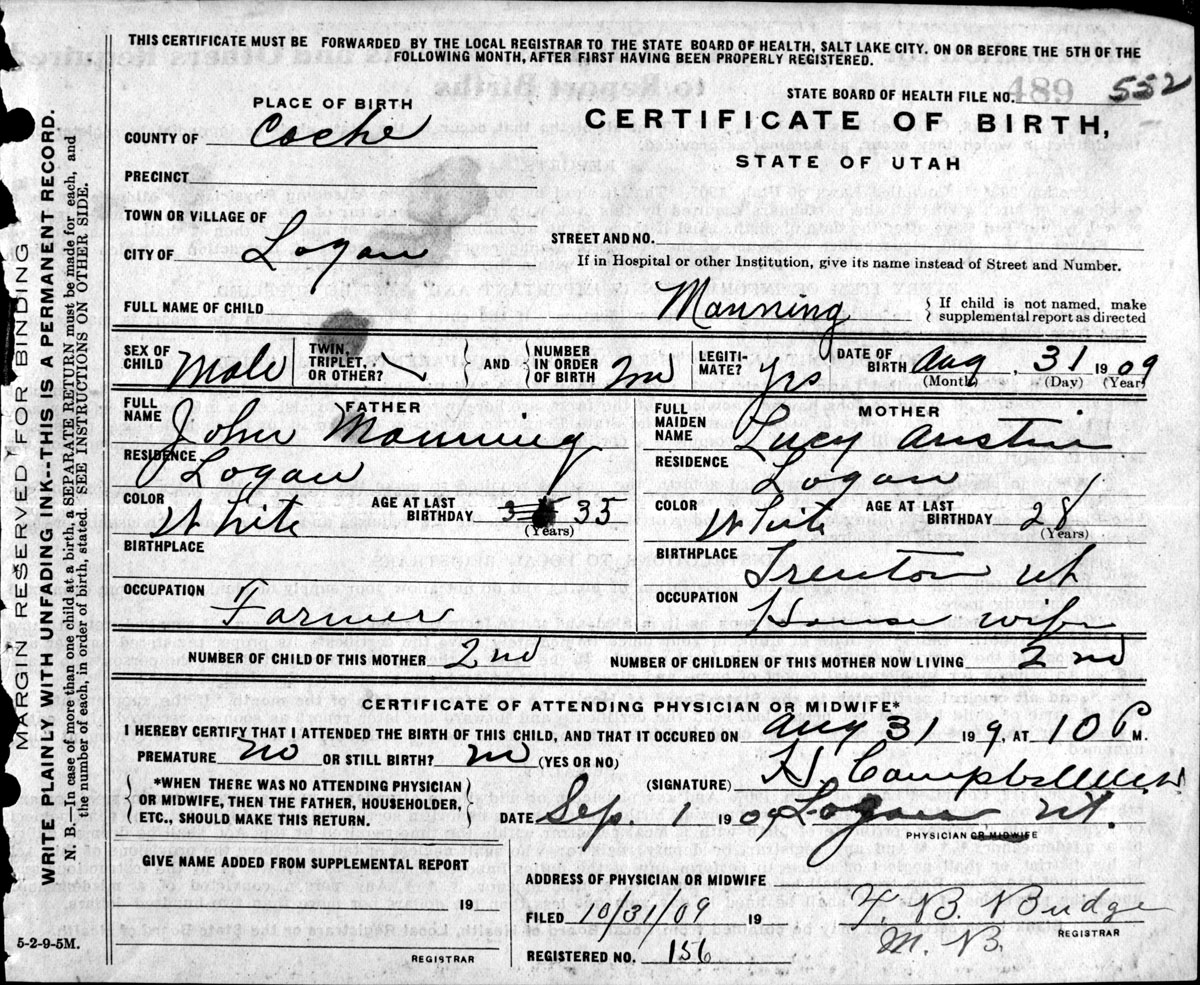 THIS CERTIFICATE MUST BE FORWARDED BY THE LOCAL REGISTRAR TO THE STATE BOARD OF HEALTH, SALT LAKE CITY. ON OR BEFORE THE 5TH OF THE
FOLLOWING MONTH, AFTER FIRST HAVING BEEN PROPERLY REGISTERED.
STATE BOARD OF HEALTH FILE NO. 489 552
PLACE OF BIRTH
COUNTY OF Cache
CERTIFICATE OF BIRTH,
STATE OF UTAH
PRECINCT
TOWN OR VILLAGE OF
CITY OF Logan
STREET AND NO.
If in Hospital or other Institution, give its name instead of Street and Number.
FULL NAME OF CHILD Manning
If child is not named, make
supplemental report as directed
SEX OF CHILD Male
TWIN, TRIPLET, OR OTHER?
AND
NUMBER IN ORDER OF BIRTH
LEGITIMATE? yes
DATE OF BIRTH Aug, 31 1909
(Month) (Day) (Year)
FATHER
FULL NAME John Manning
RESIDENCE Logan
COLOR White
AGE AT LAST BIRTHDAY 35
(Years)
BIRTHPLACE
OCCUPATION Farmer
MOTHER
FULL MAIDEN NAME Lucy Austin
RESIDENCE Logan
COLOR White
AGE AT LAST BIRTHDAY 28
(Years)
BIRTHPLACE Trenton Ut
OCCUPATION House wife
NUMBER OF CHILD OF THIS MOTHER 2nd
NUMBER OF CHILDREN OF THIS MOTHER NOW LIVING 2nd
CERTIFICATE OF ATTENDING PHYSICIAN OR MIDWIFE*
I HEREBY CERTIFY THAT I ATTENDED THE BIRTH OF THIS CHILD, AND THAT IT OCCURED ON Aug 31 199, AT 10 P M.
PREMATURE no OR STILL BIRTH? no (YES OR NO)
*WHEN THERE WAS NO ATTENDING PHYSICIAN
OR MIDWIFE, THEN THE FATHER, HOUSEHOLDER,
ETC., SHOULD MAKE THIS RETURN.
(SIGNATURE) H. Campbell
DATE Sep. 1 190 Logan Ut.
PHYSICIAN OR MIDWIFE
GIVE NAME ADDED FROM SUPPLEMENTAL REPORT
19
REGISTRAR
ADDRESS OF PHYSICIAN OR MIDWIFE
FILED 10/31/09 19
REGISTERED NO. 156
REGISTRAR
5-2-9-5M.
MARGIN RESERVED FOR BINDING
WRITE PLAINLY WITH UNFADING INK--THIS IS A PERMANENT RECORD.
N. B.—In case of more than one child at a birth a SEPARATE RETURN must be made for each, and
the number of each, in order of birth, stated. SEE INSTRUCTIONS ON OTHER SIDE.